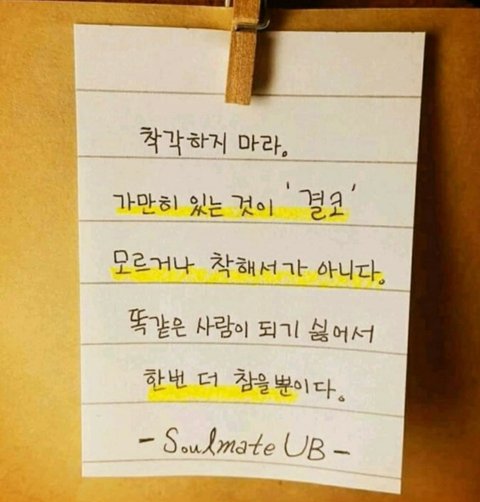 착각하지 마라.
가만히 있는 것이 '결코'
모르거나 착해서가 아니다.
똑같은 사람이 되기 싫어서
한번 더 참을뿐이다.
- Soulmate UB -